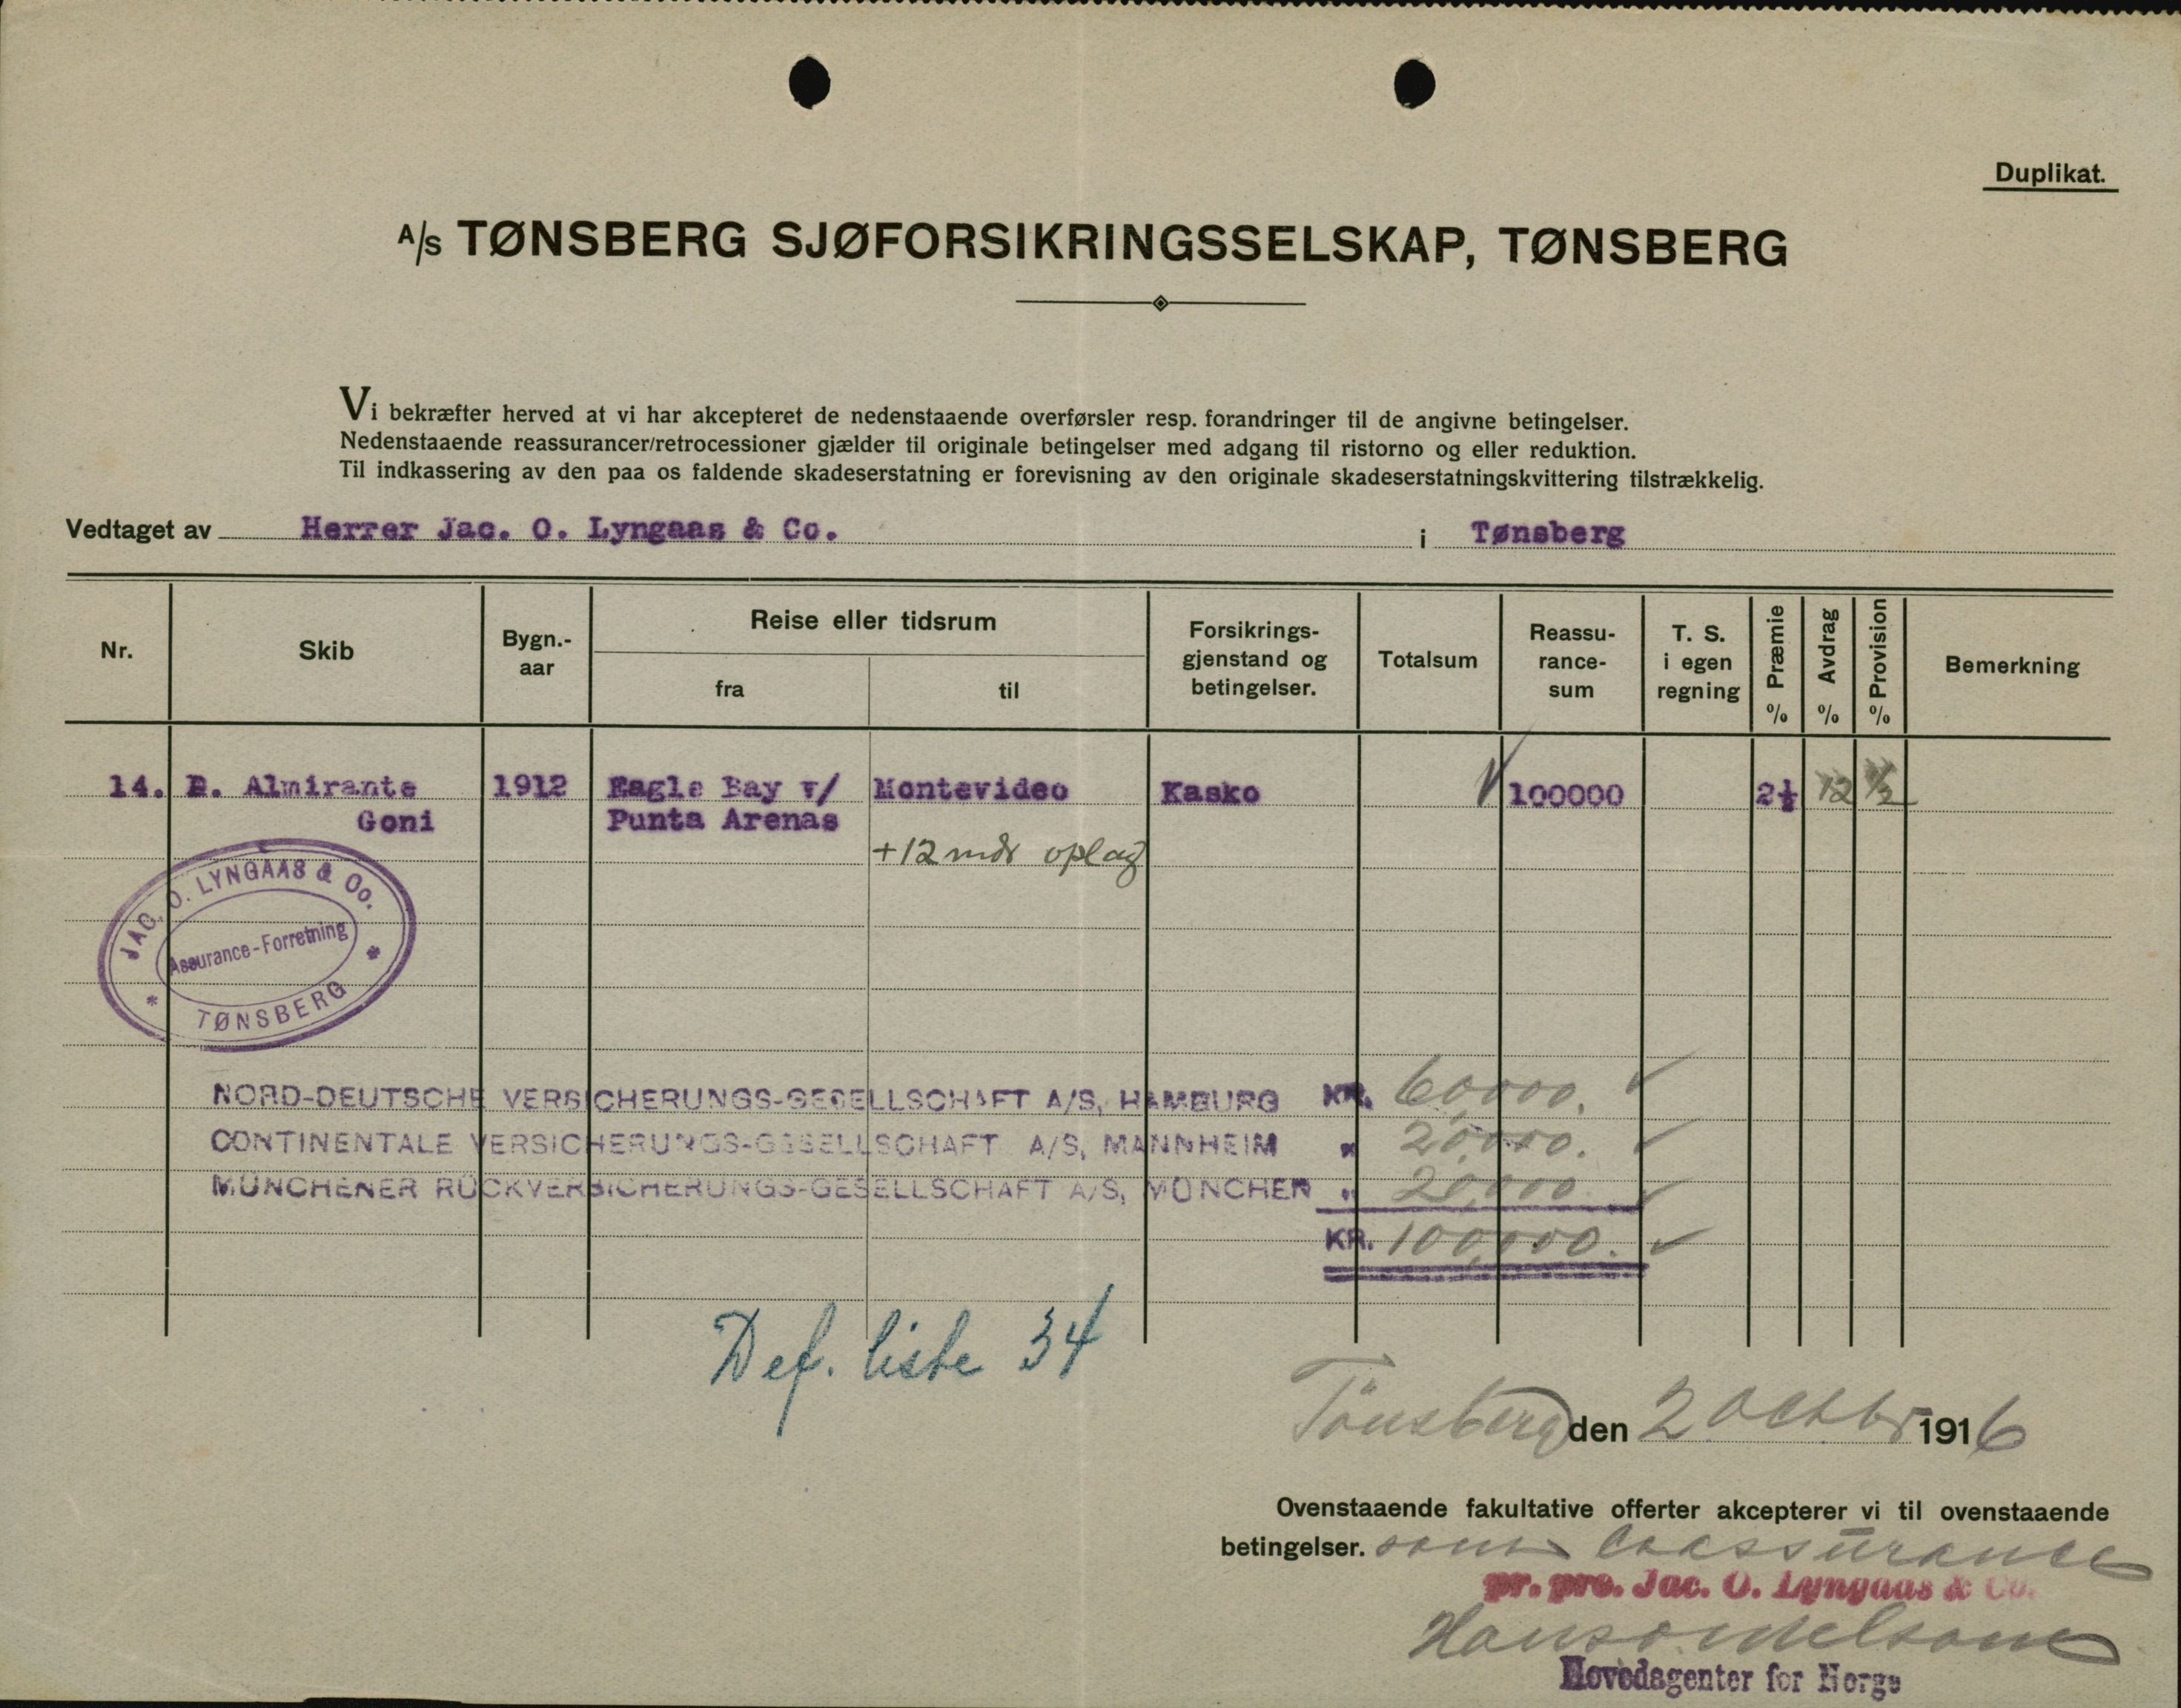 Duplikat.
A/S TØNSBERG SJØFORSIKRINGSSELSKAP, TØNSBERG
Vi bekræfter herved at vi har akcepteret de nedenstaaende overførsler resp. forandringer til de angivne betingelser.
Nedenstaaende reassurancer/retrocessioner gjælder til originale betingelser med adgang til ristorno og eller reduktion.
Til indkassering av den paa os faldende skadeserstatning er forevisning av den originale skadeserstatningskvittering tilstrækkelig.
Vedtaget av Herrer Jac. O. Lyngaas & Co. i Tønsberg
Nr. Skib Bygn.-aar Reise eller tidsrum fra til Forsikrings-gjenstand og betingelser. Totalsum Reassu-rance-sum T. S. i egen regning Præmie % Avdrag % Provision % Bemerkning
14. D. Almirante 1912 Eagle Bay v/ Montevideo Kasko 100000 2½ 12 ½
Goni Punta Arenas
+12 mdr oplag
JAC. O. LYNGAAS & Co.
Assurance-Forretning
* TØNSBERG *
NORD-DEUTSCHE VERSICHERUNGS-GESELLSCHAFT A/S, HAMBURG KR. 60,000.
CONTINENTALE VERSICHERUNGS-GESELLSCHAFT A/S, MANNHEIM " 20,000.
MÜNCHENER RÜCKVERSICHERUNGS-GESELLSCHAFT A/S, MÜNCHEN " 20,000
KR. 100,000.
Def. liste 34
Tönsberg den 2 Octbr 1916
Ovenstaaende fakultative offerter akcepterer vi til ovenstaaende
betingelser. som Coassurance
pr. pro. Jac. O. Lyngaas & Co.
Hovedagenter for Norge